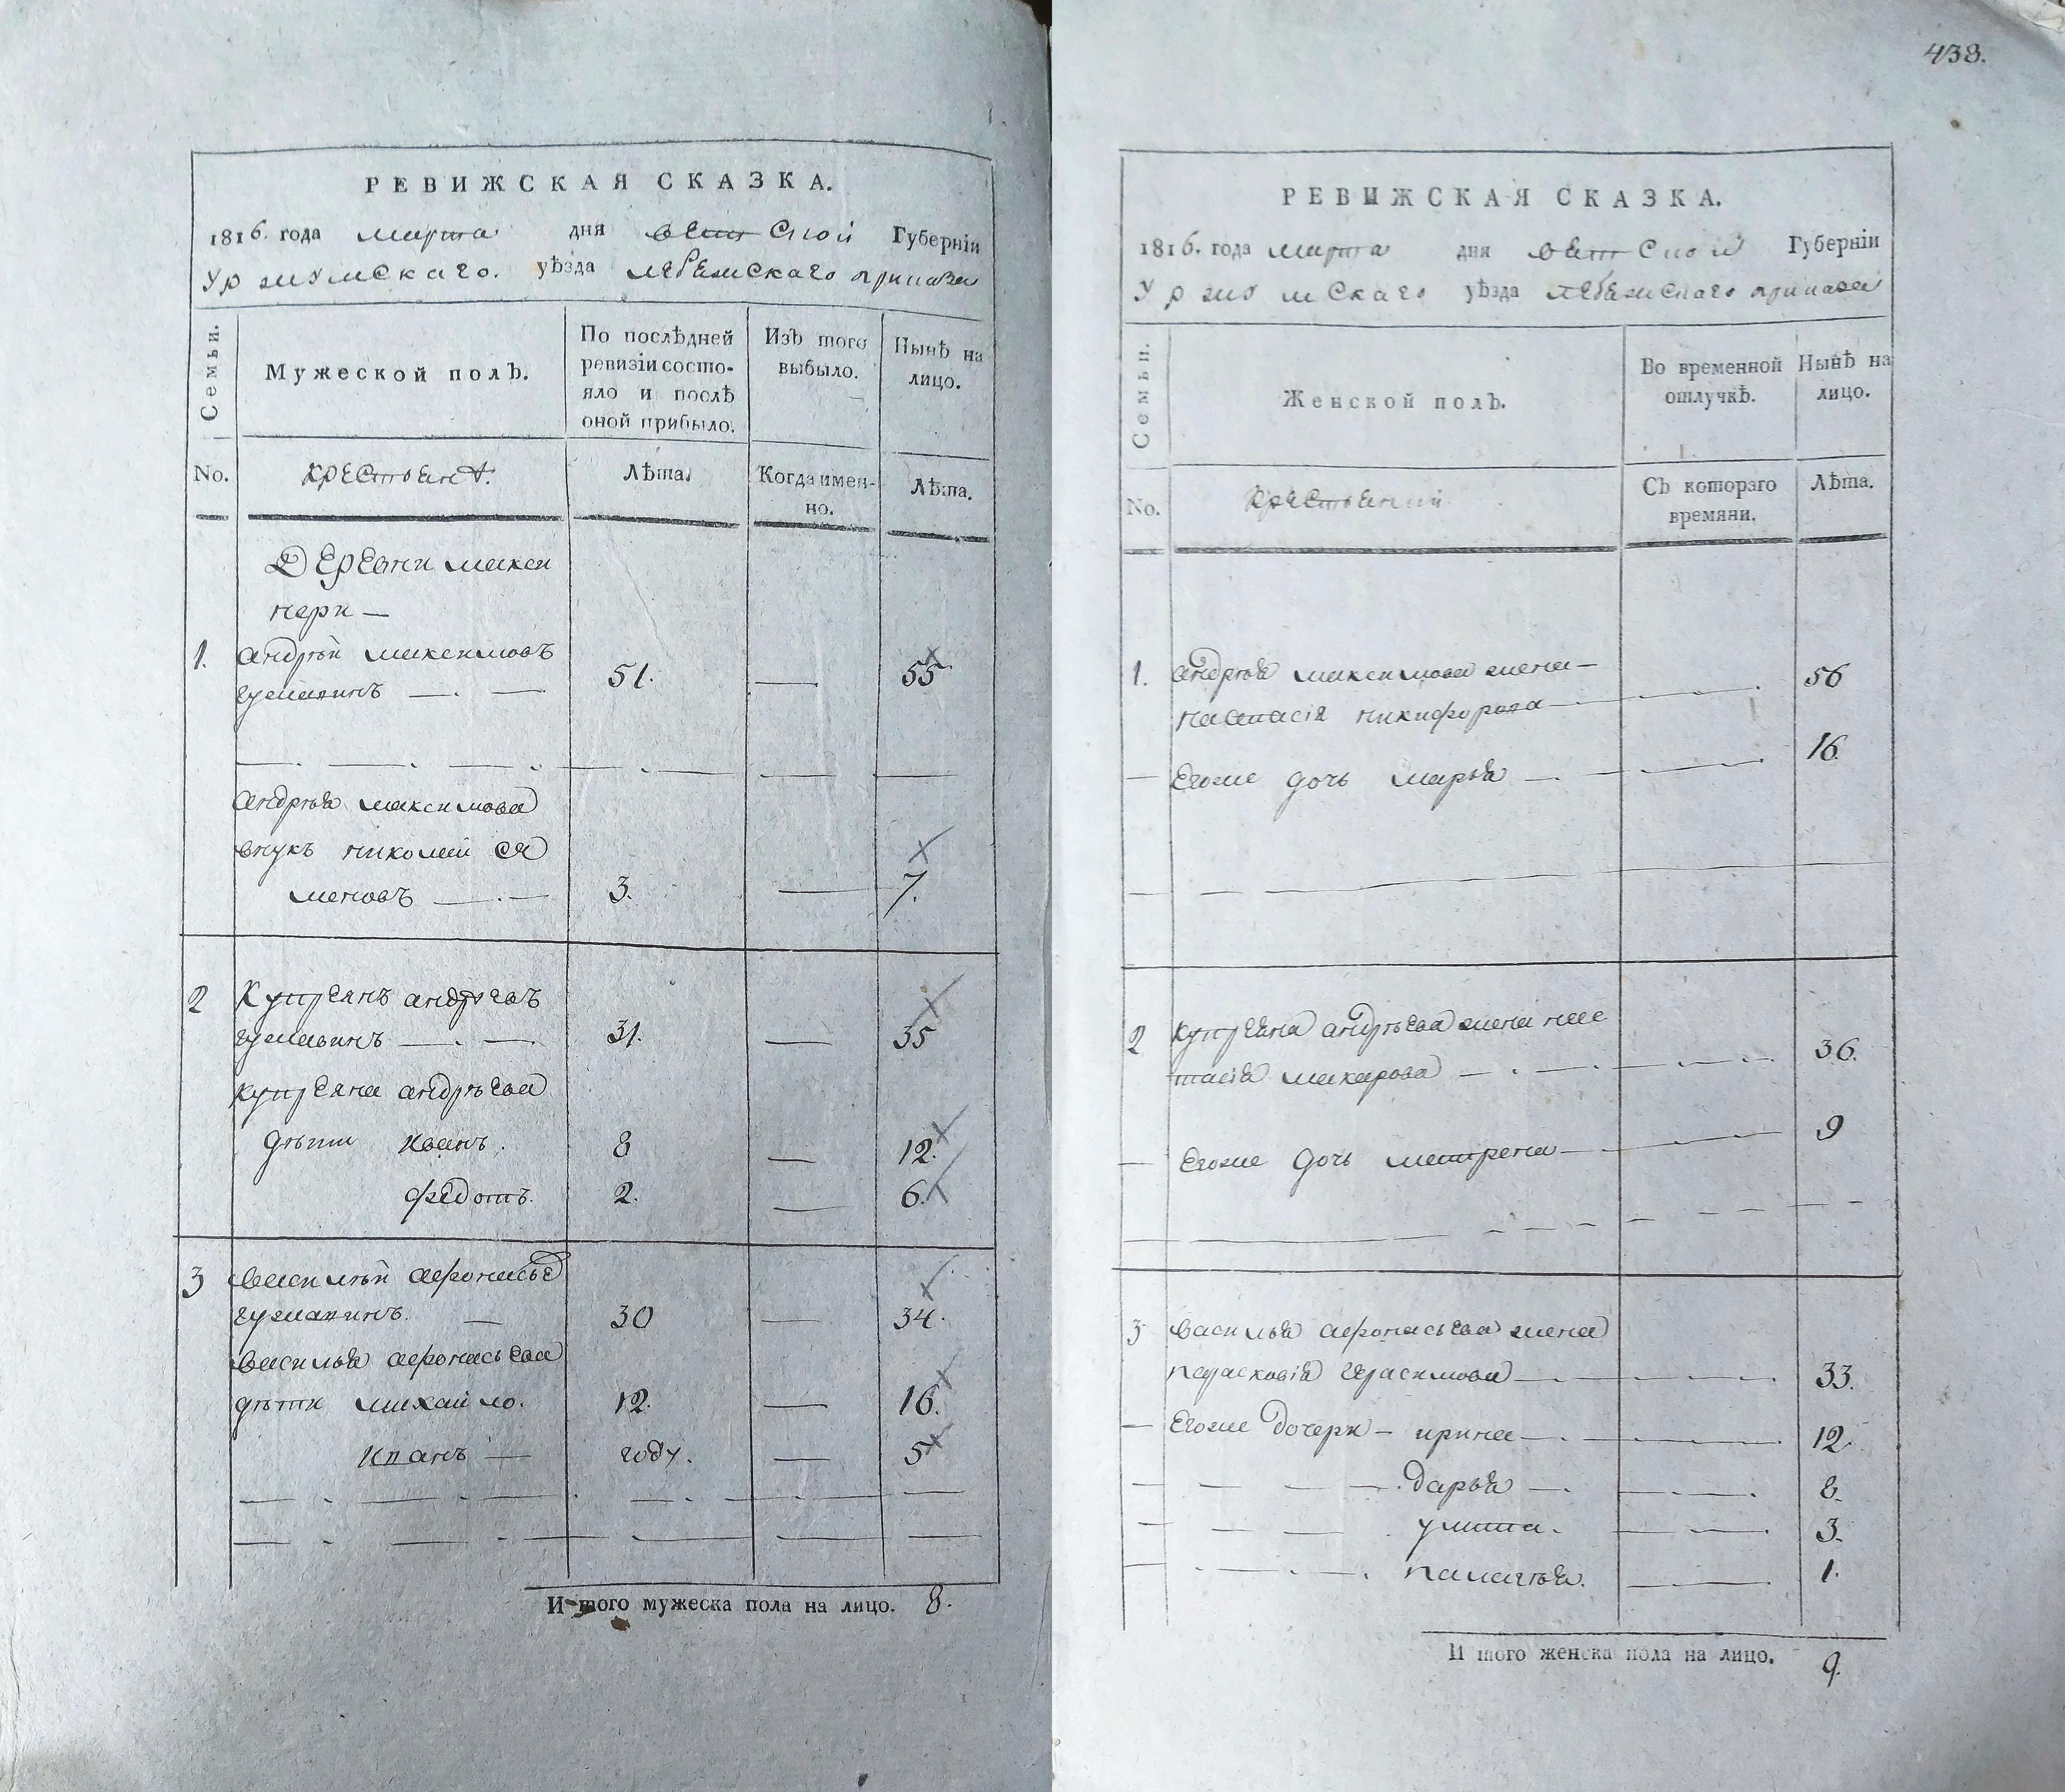 438.
РЕВИЖСКАЯ СКАЗКА.
1816. года марта дня вятской Губерніи
Уржумскаго. уѣзда лебежскаго приказа
Семьи.
Мужеской полъ.
По послѣдней ревизіи состо-
яло и послѣ
оной прибыло.
Изъ того
выбыло.
Нынѣ на
лицо.
No.
Лѣта.
Когда имен-
но.
Лѣта.
Деревни
1. андрѣй максимовъ
51. — 55
андрѣя максимова
внукъ николай се
меновъ — 3. — 7.
2 Купреянъ андреевъ
31. — 35
купреяна андрѣева
дѣти иванъ. 8 — 12.
федотъ. 2. — 6.
3 василѣй афонасьев
30 — 34.
василья афонасьева
дѣти михайло. 12. — 16.
иванъ — году. — 5
И того мужеска пола на лицо. 8.
РЕВИЖСКАЯ СКАЗКА.
1816. года марта дня вятской Губерніи
Уржумскаго уѣзда лебежскаго приказа
Семьи.
Женской полъ.
Во временной
отлучкѣ.
Нынѣ на
лицо.
No.
Съ котораго
времяни.
Лѣта.
1. андрѣя максимова жена —
настасія никифорова — 56
— егоже дочь марья — 16.
2 купреяна андрѣева жена нас
тасія макарова — 36.
— егоже дочь матрена — 9
3 василья афонасьева жена
парасковія герасимова — 33.
— егоже дочери — ирина — 12.
дарья — 8.
улита. 3.
палагѣя. 1.
И того женска пола на лицо. 9.